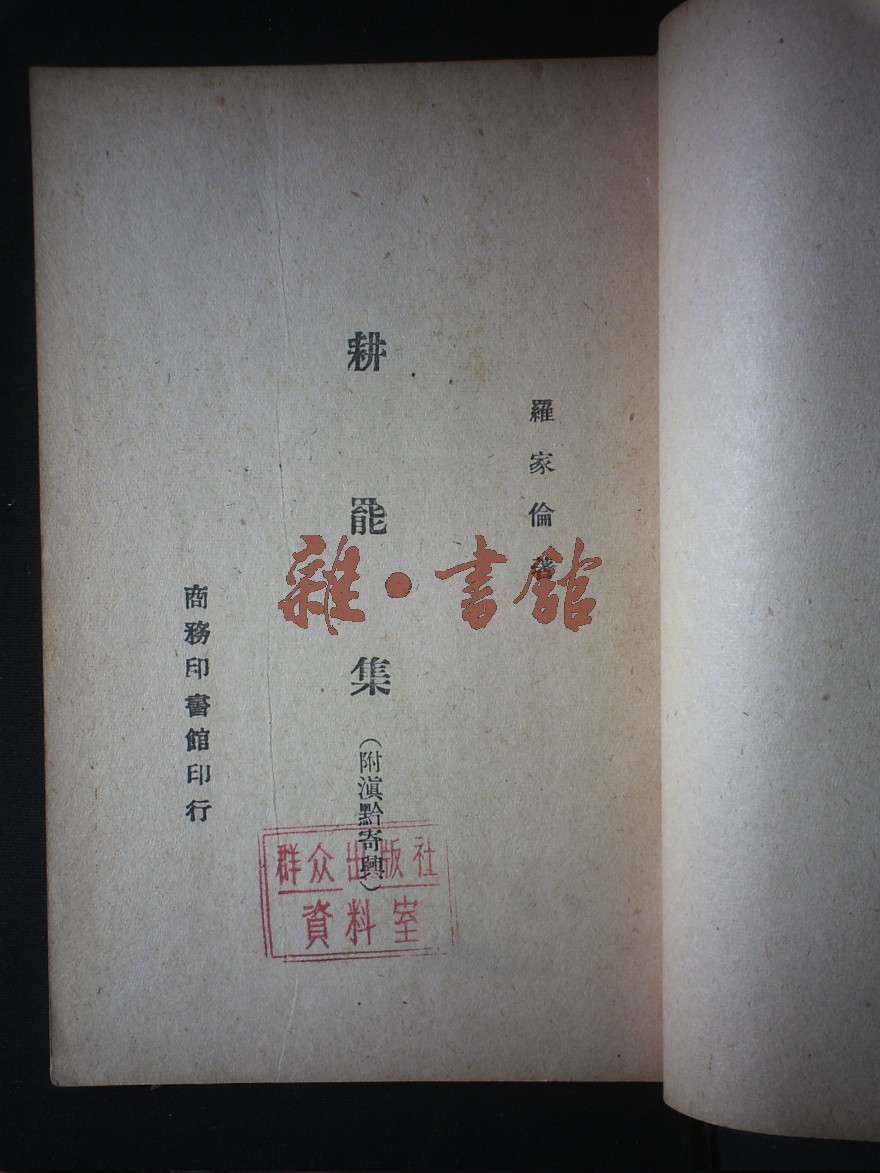 羅家倫著
耕罷集(附滇黔寄興)
商務印書館印行
雜·書館
群众出版社
資料室